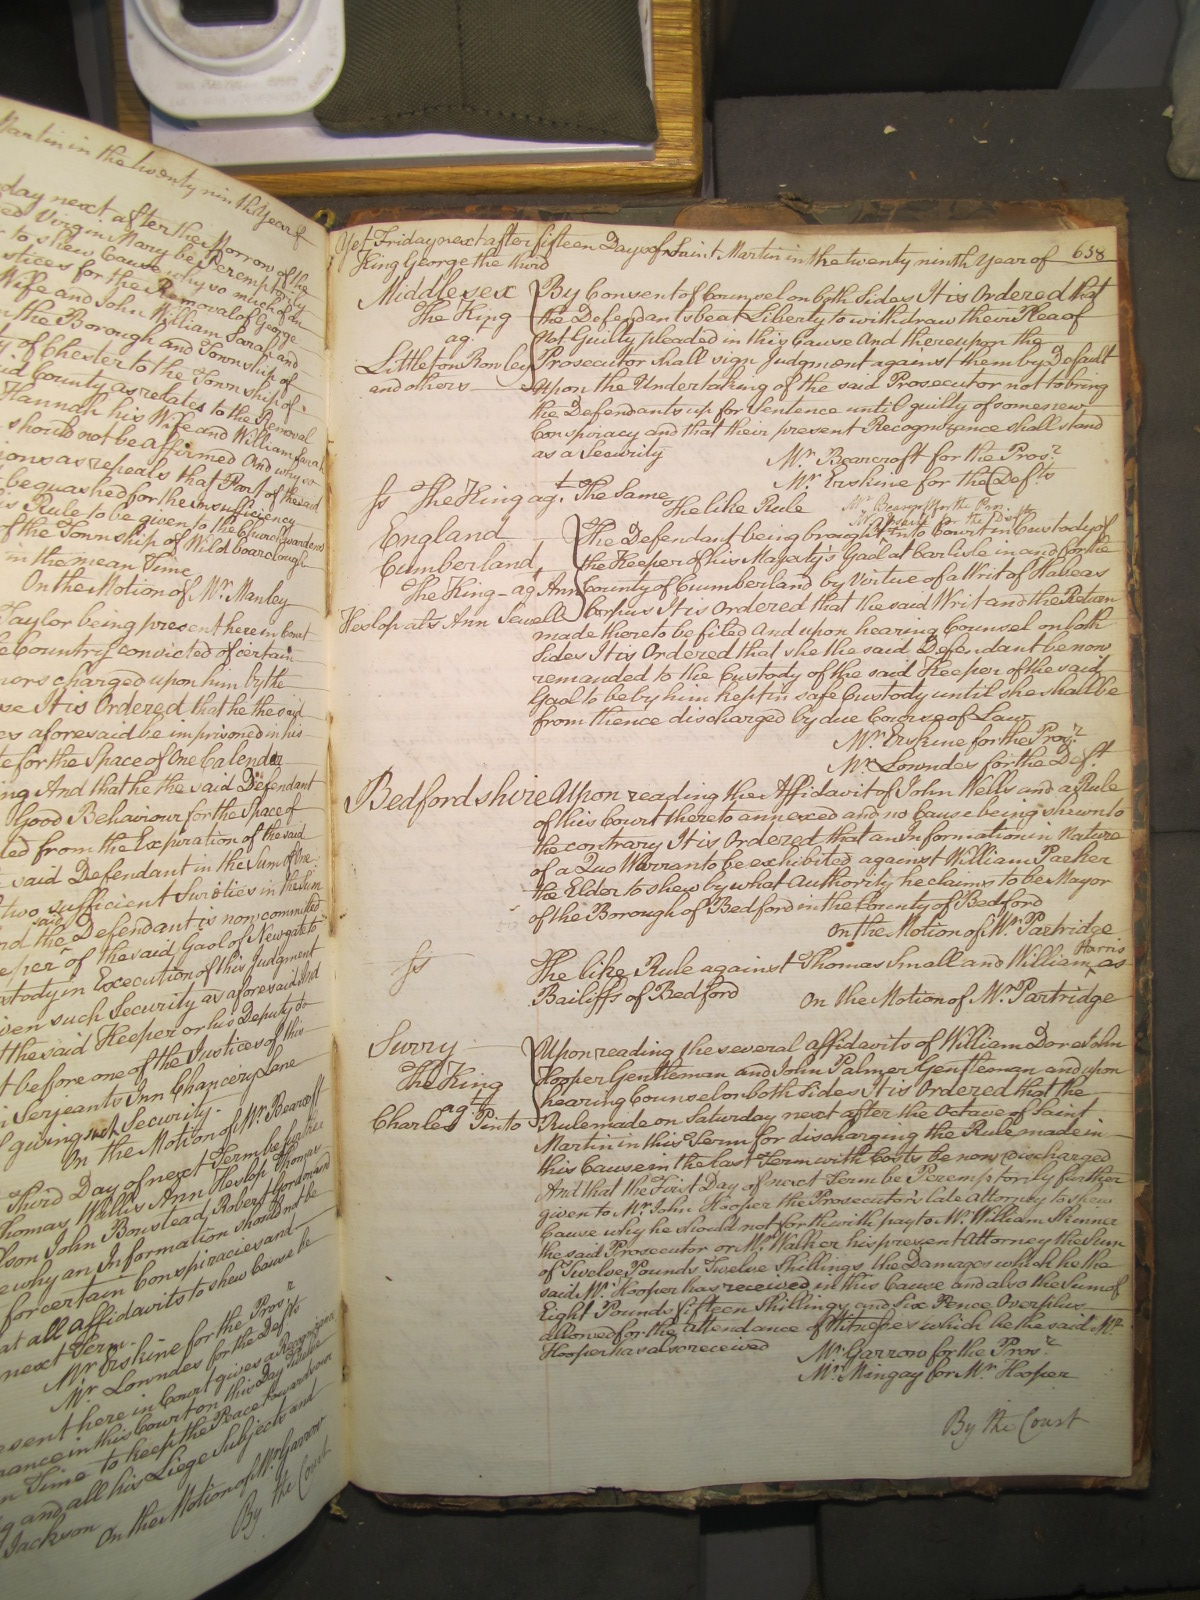 Martin in the twenty ninth Year of
day next after the Morrow of the
ed Virgin Mary be Peremptorily
to shew Cause why so much of an
stices for the Removal of George
Wife and John William Sarah and
n the Borough and Township of
y of Chester to the Township of
id County as relates to the Removal
Hannah his Wife and William Sarah
should not be affirmed And why so
ions as repeals that Part of the said
be quashed for the insufficiency
is Rule to be given to the Churchwardens
f the Township of Wildboarclough
in the mean Time
On the Motion of Mr. Manley
Taylor being present here in Court
e Country convicted of certain
nors charged upon him by the
se It is Ordered that he the said
es aforesaid be imprisoned in his
te for the Space of One Calendar
ng And that he the said Defendant
Good Behaviour for the Space of
ted from the Expiration of the said
said Defendant in the Sum of
two sufficient Sureties in the Sum
nd the said Defendant is now committed
eeper of the said Gaol of Newgate to
stody in Execution of this Judgment
iven such Security as aforesaid And
t the said Keeper or his Deputy do
t before one of the Justices of this
Serjeants Inn Chancery Lane
f giving such Security.
On the Motion of Mr. Bearcroft
Third Day of next Term be further
Thomas Wallis Ann Heslop Thomas
lson John Boustead Robert Gordon and
e why an Information should not be
for certain Conspiracies and
at all affidavits to shew Cause be
next Term.
Mr. Erskine for the Prosr.
Mr. Lowndes for the Defts
esent here in Court gives a Recognizance
rance in this Court on this Day Twelve
n Time to keep the Peace towards our
g and all his Liege Subjects and
Jackson On the Motion of Mr. Garrow
By the Court
Yet Friday next after fifteen Days of Saint Martin in the twenty ninth Year of 658
King George the third
Middlesex By Consent of Counsel on both Sides It is Ordered that
The King the Defendants be at Liberty to withdraw their Plea of
ag. Not Guilty pleaded in this Cause And thereupon the
Littleton Rowley Prosecutor shall sign Judgment against them by Default
and others Upon the Undertaking of the said Prosecutor not to bring
the Defendants up for Sentence until guilty of some new
Conspiracy and that their present Recognizance shall stand
as a Security Mr. Bearcroft for the Prosr.
Mr. Erskine for the Defts
Ss The King agt. The Same The like Rule Mr. Bearcroft for the Prosr.
England The Defendant being brought into Court in Custody of
Cumberland, the Keeper of his Majesty's Gaol at Carlisle in and for the
The King - agt Ann County of Cumberland by Virtue of a Writ of Habeas
Heslop als Ann Sewell Corpus It is Ordered that the said Writ and the Return
made thereto be filed And upon hearing Counsel on both
Sides It is Ordered that she the said Defendant be now
remanded to the Custody of the said Keeper of the said
Gaol to be by him kept in safe Custody until she shall be
from thence discharged by due Course of Law
Mr. Erskine for the Prosr.
Mr. Lowndes for the Deft.
Bedfordshire Upon reading the Affidavit of John Wells and a Rule
of this Court thereto annexed and no Cause being shewn to
the contrary It is Ordered that an Information in Nature
of a Quo Warranto be exhibited against William Parker
the Elder to shew by what Authority he claims to be Mayor
of the Borough of Bedford in the County of Bedford
On the Motion of Mr. Partridge
Ss The like Rule against Thomas Small and William Harris as
Bailiffs of Bedford On the Motion of Mr. Partridge
Surry Upon reading the several affidavits of William Dore John
The King Hooper Gentleman and John Palmer Gentleman and upon
agt. hearing Counsel on both Sides It is Ordered that the
Charles Pinto Rule made on Saturday next after the Octave of Saint
Martin in this Term for discharging the Rule made in
this Cause in the last Term with Costs be now discharged
And that the First Day of next Term be Peremptorily further
given to Mr. John Hooper the Prosecutor's late Attorney to shew
Cause why he should not forthwith pay to Mr. William Skinner
the said Prosecutor or Mr. Walker his present Attorney the Sum
of Twelve Pounds Twelve Shillings the Damages which he the
said Mr. Hooper has received in this Cause and also the Sum of
Eight Pounds fifteen Shillings and Six Pence Overplus
allowed for the attendance of Witnesses which he the said Mr.
Hooper has also received Mr. Garrow for the Prosr.
Mr. Mingay for Mr. Hooper
By the Court